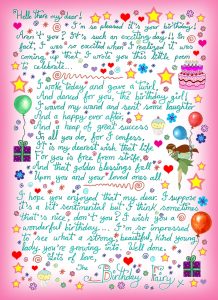 Hello there my dear!
I'm so pleased it's your birthday!
Aren't you? It's such an exciting day! In
fact, I was so excited when I realized it was
coming up that I wrote you this little poem
to celebrate...
I woke today and gave a twirl,
And danced for you the birthday girl!
I waved my wand and sent some laughter
And a happy ever after,
And a heap of great success
In all you do, for I confess,
It is my dearest wish that life
For you is free from strife,
And that golden blessings fall
Upon you and your loved ones all.
I hope you enjoyed that my dear. I suppose
it's a bit sentimental but I think sometimes
that's nice, don't you? I wish you a
wonderful birthday... I'm so impressed
to see what a strong, beautiful, kind young
lady you're growing into. Well done!
Lots of love,
The Birthday Fairy x